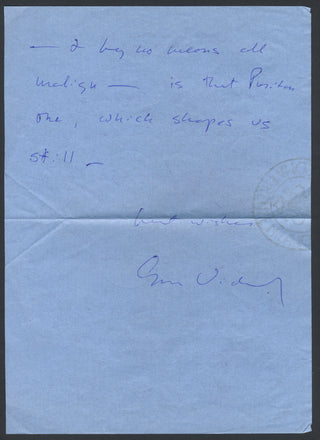 — & by no means all
malign — is that Puritan
one, which shapes us
still —
best wishes
Gore Vidal